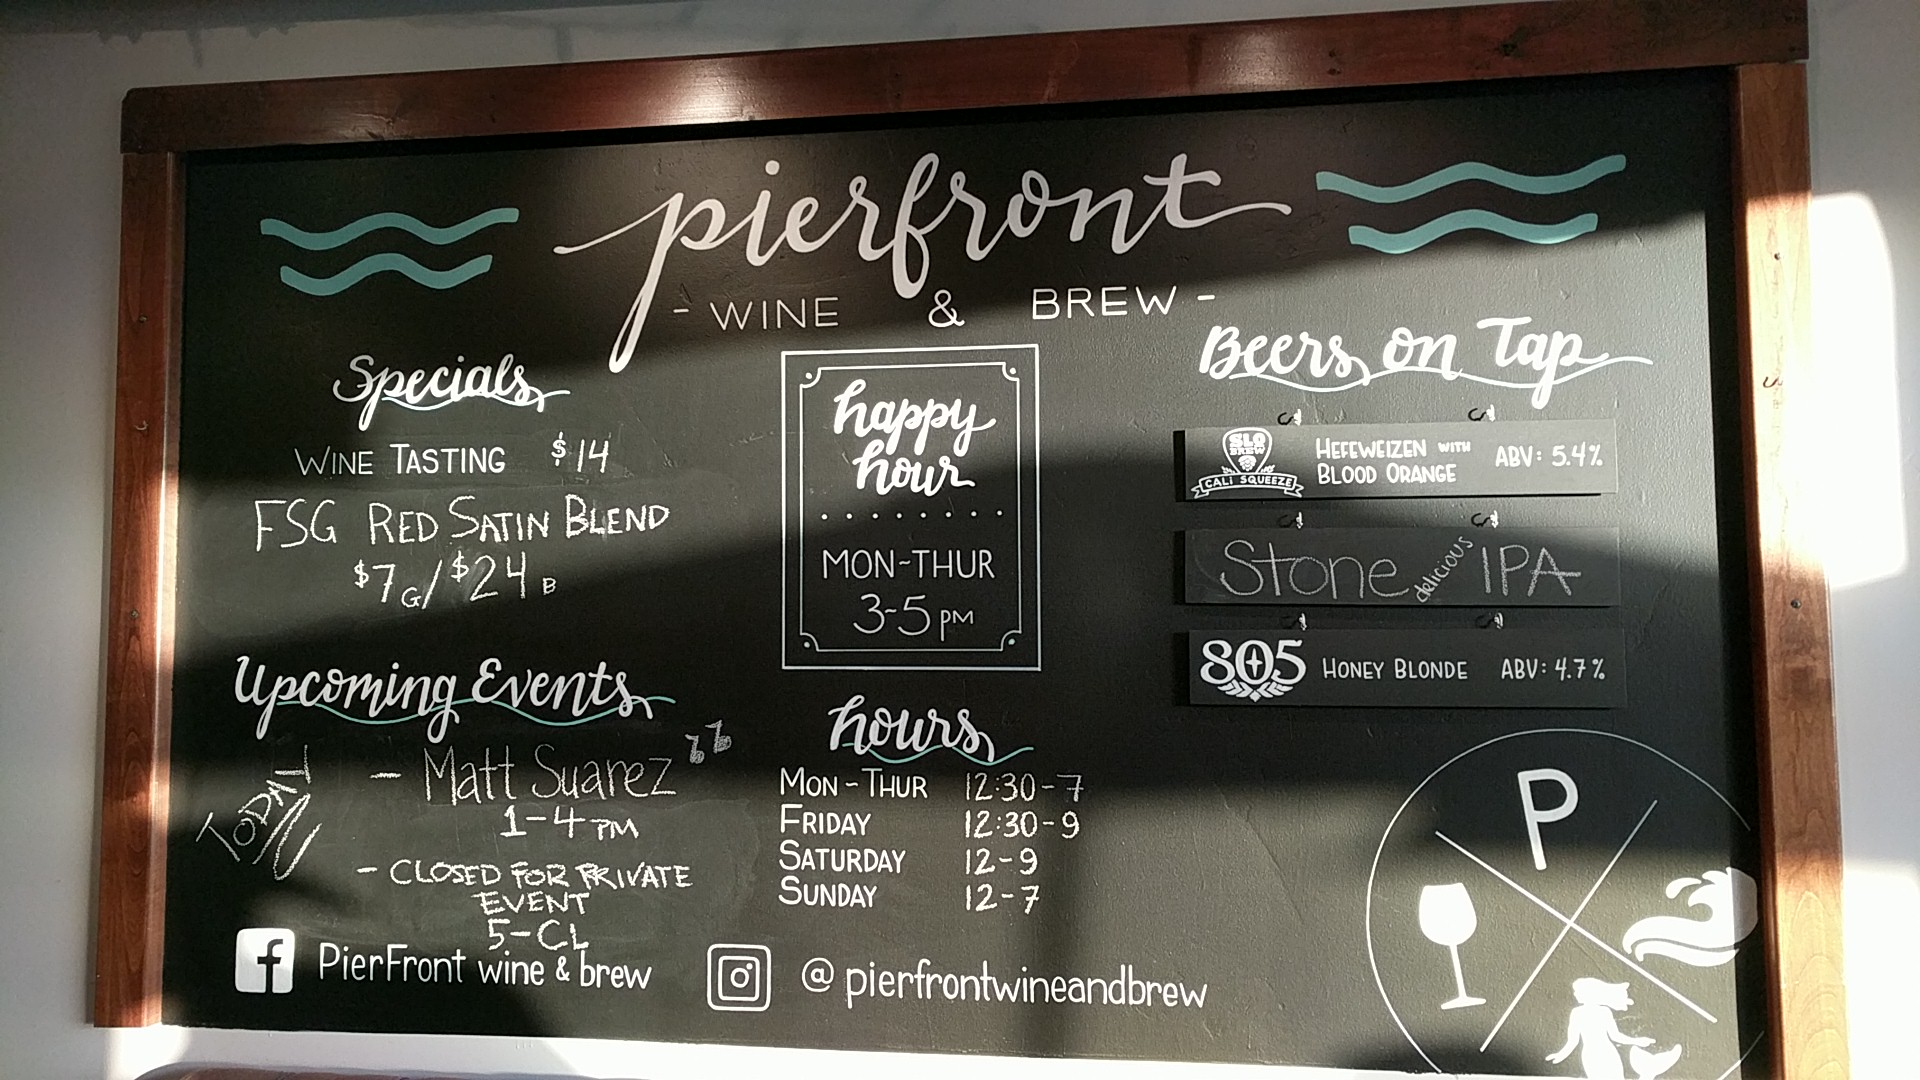 pierfront
- WINE & BREW -
Specials
WINE TASTING $14
FSG RED SATIN BLEND
$7G/$24B
Upcoming Events
TODAY
- Matt Suarez
1-4 PM
- CLOSED FOR PRIVATE
EVENT
5-CL
happy
hour
MON-THUR
3-5 PM
hours
MON-THUR 12:30-7
FRIDAY 12:30-9
SATURDAY 12-9
SUNDAY 12-7
Beers on Tap
SLO
BREW
CALI SQUEEZE
HEFEWEIZEN WITH
BLOOD ORANGE
ABV: 5.4%
Stone delicious IPA
805 HONEY BLONDE ABV: 4.7%
P
f PierFront wine & brew
@pierfrontwineandbrew